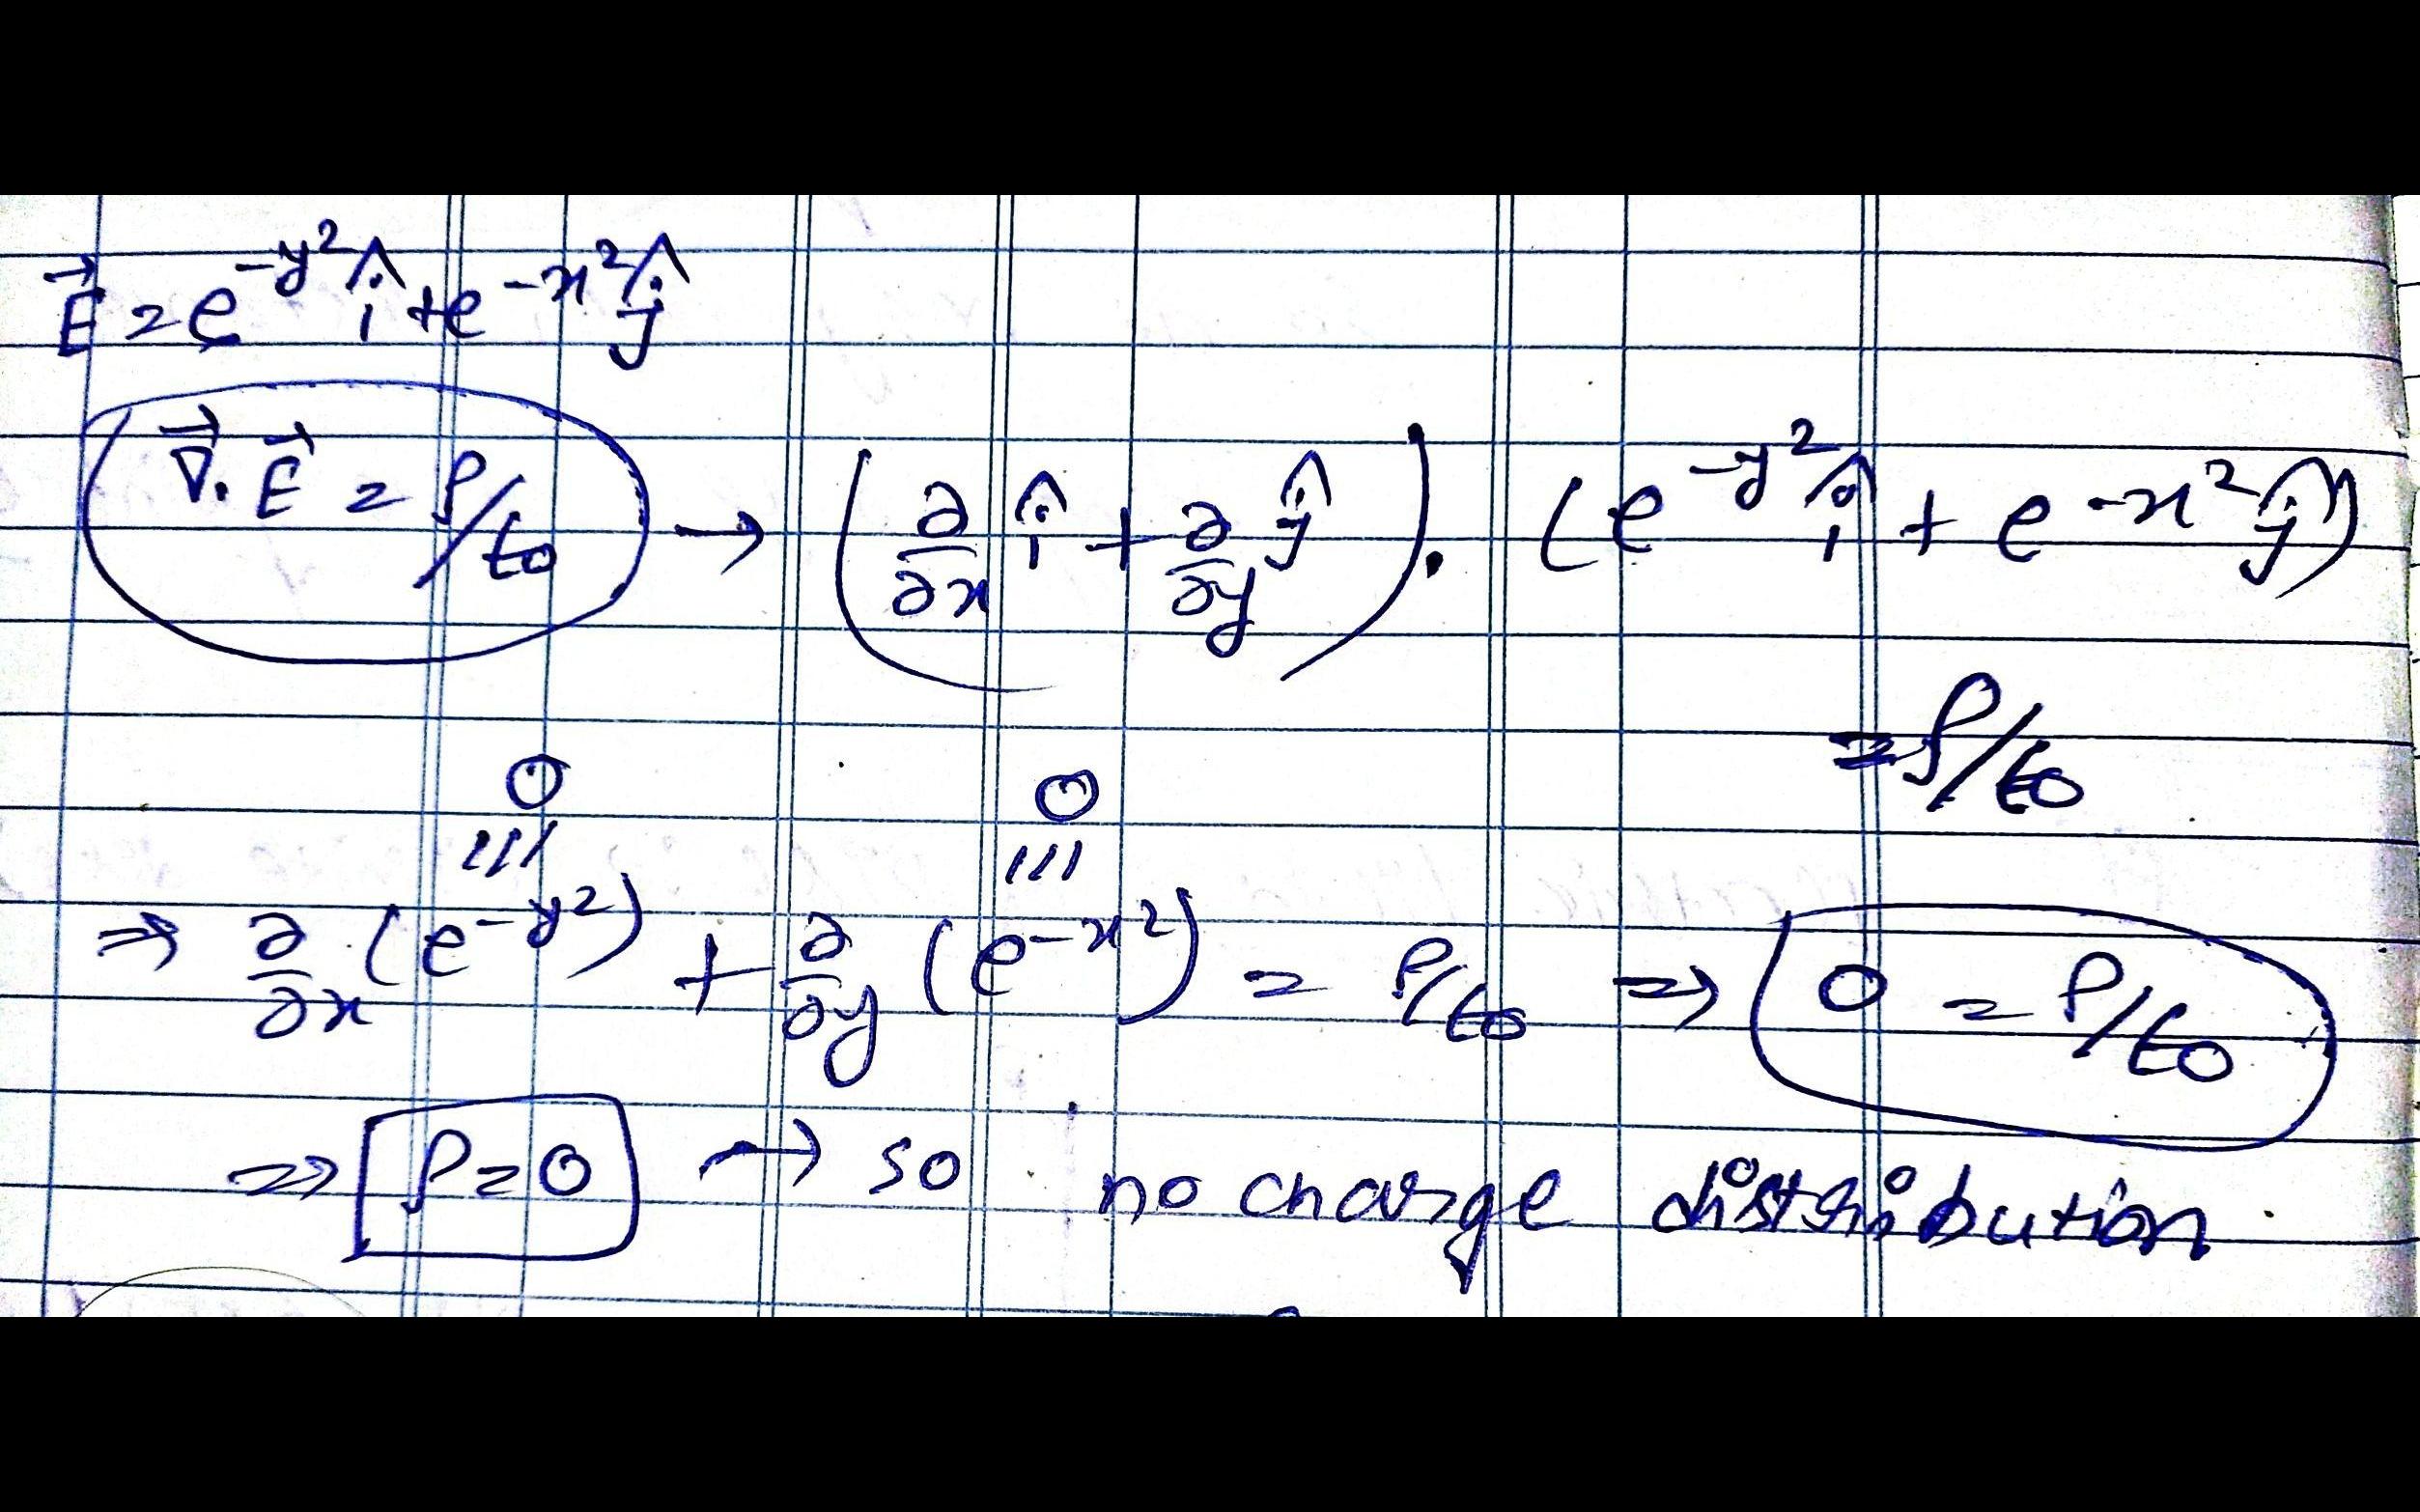 E⃗ = e^{-y²} î + e^{-x²} ĵ
∇⃗. E⃗ = ρ/ε₀ → (∂/∂x î + ∂/∂y ĵ) . (e^{-y²} î + e^{-x²} ĵ)
= ρ/ε₀
0 0
⇒ ∂/∂x (e^{-y²}) + ∂/∂y (e^{-x²}) = ρ/ε₀ ⇒ 0 = ρ/ε₀
⇒ ρ = 0 → so no charge distribution.